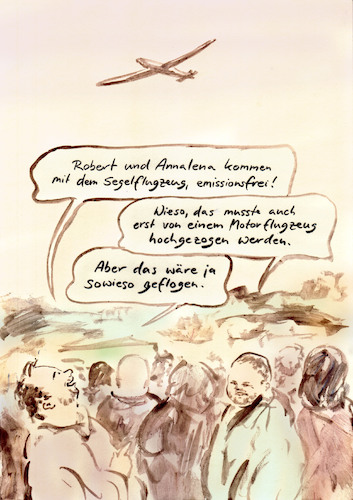 Robert und Annalena kommen
mit dem Segelflugzeug, emissionsfrei!
Wieso, das musste auch
erst von einem Motorflugzeug
hochgezogen werden.
Aber das wäre ja
sowieso geflogen.